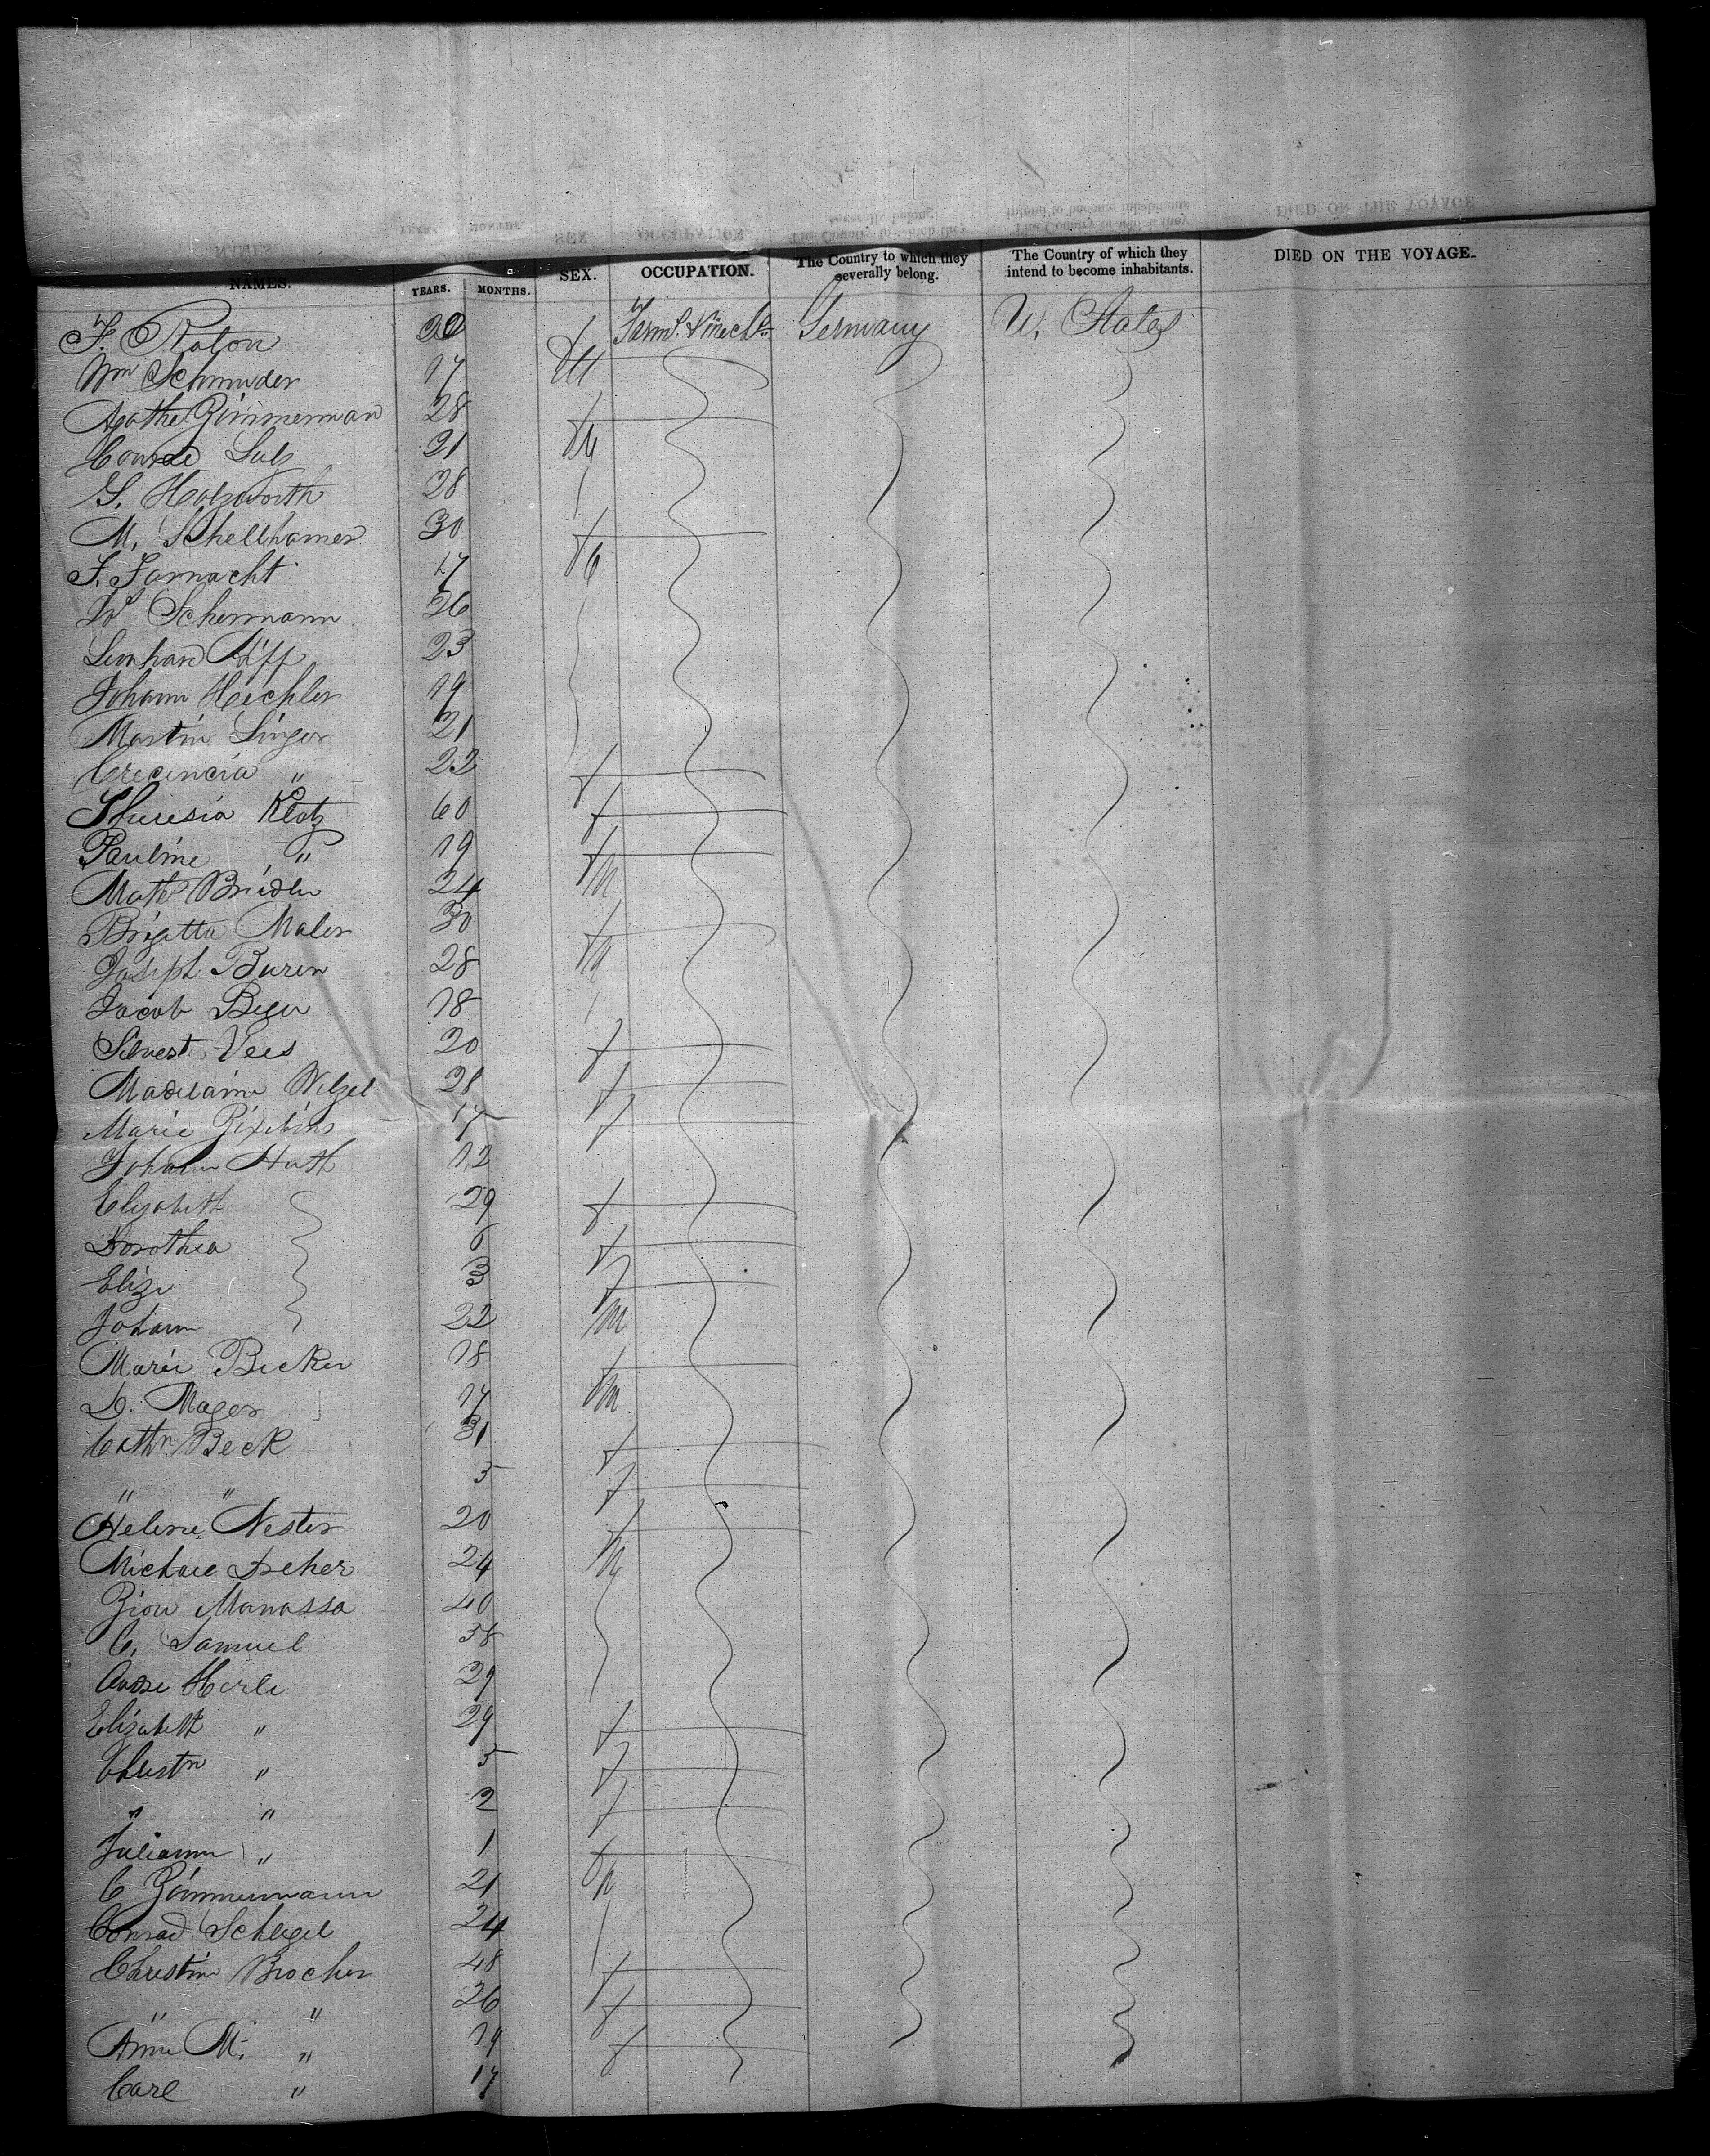 NAMES. YEARS. MONTHS. SEX. OCCUPATION. The Country to which they severally belong. The Country of which they intend to become inhabitants. DIED ON THE VOYAGE.
F. Raton 20 Germany U. States
Wm Schmuder 17
Agathe Zimmerman 28
Conrad Lutz 21
G. Holzworth 28
M. Schellhamer 30
F. Farnacht 17
Schermann 26
23
Johann Heichler 19
Martin Singer 21
Crecencia " 22
Theresia Klotz 60
Pauline " 19
Math Breidler 24
Brigatta Maler 30
Joseph Buren 28
Jacob Beyer 18
Silvest Vees 20
Madelaine Wetzel 28
Marie 17
Johann Huth 12
Elizabeth 29 f
Dorothea 6 f
Elize 3 f
Johann 22 m
Marie Becker 18
D. Mager 17
Cathn Beck 31 f
" " 5 f
Helene Nester 20
Michael 24
Zion Manassa 40
C. Samuel 38
Herle 29
Elizabeth " 29 f
Christn " 5 f
" " 2 f
Juliann " 1
C Zimmermann 21
Conrad Schlegel 24
Christine Brocher 48 f
" " 26 f
Anna M. " 19 f
Carl " 17